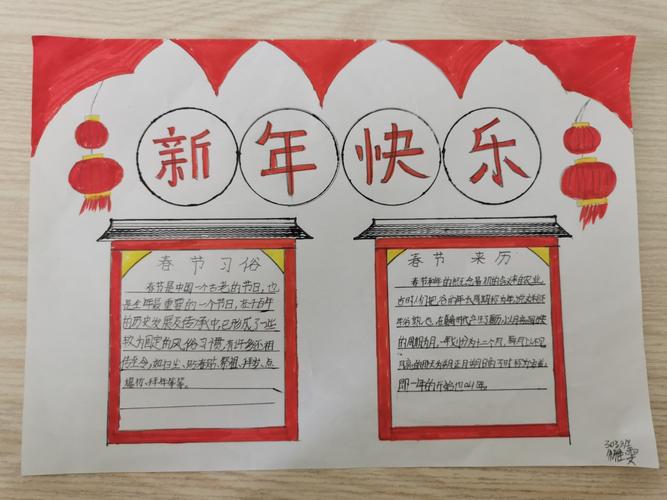 新年快乐
春节习俗
春节是中国一个古老的节日,也
是全年最重要的一个节日,在千百年
的历史发展及传承中,已形成了一些
较为固定的风俗习惯,有许多还相
传至今,如扫尘、贴春联、祭祖、拜岁、点
爆竹、拜年等等。
春节 来历
春节和年的概念,最初的含义来自农业,
古时人们把谷的生长周期称为年,
在夏商时代产生了夏历,以月亮圆缺
的周期为月,一年划分为十二个月,每月以不见
月亮的那天为朔,正月朔日的子时称为岁首,
即一年的开始,也叫年。